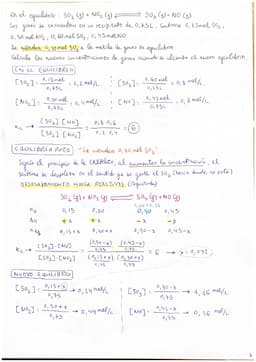 En el equilibrio: SO₂ (g) + NO₂ (g) ⇌ SO₃ (g) + NO (g)
los gases se encuentran en un recipiente de 0,75L. Contiene 0,15mol SO₂,
0,30 mol NO₂, 0,60 mol SO₃, 0,45 mol NO
Se añaden 0,30 mol SO₃ a la mezcla de gases en equilibrio
Calcula las nuevas concentraciones de gases cuando se alcanza el nuevo equilibrio.
EN EL EQUILIBRIO
[SO₂] : 0,15mol / 0,75L : 0,2 mol/L [SO₃] : 0,60 mol / 0,75L : 0,8 mol/L
[NO₂] : 0,30 mol / 0,75L : 0,4 mol/L [NO] : 0,45 mol / 0,75L : 0,6 mol/L
Kc → [SO₃] [NO] / [SO₂] [NO₂] : 0,8·0,6 / 0,2·0,4 : 6
EQUILIBRIO ROTO "Se añaden 0,30 mol SO₃"
Según el principio de Le Châtelier, al aumentar la concentración, el
sistema se desplaza en el sentido que se gaste el SO₃ (hacia donde no está)
DESPLAZAMIENTO HACIA REACTIVOS (izquierda)
SO₂ (g) + NO₂ (g) ⇌ SO₃ (g) + NO (g)
0,60 + 0,30
n₀ 0,15 0,30 0,90 0,45
Δn +x +x -x -x
neq 0,15+x 0,30+x 0,90-x 0,45-x
Kc → [SO₃]·[NO] / [SO₂]·[NO₂] : (0,90-x)/0,75 · (0,45-x)/0,75 / (0,15+x)/0,75 · (0,30+x)/0,75 : 6 → x: 0,031
NUEVO EQUILIBRIO
[SO₂] : 0,15+x / 0,75 → 0,24 mol/L [SO₃] : 0,90-x / 0,75 → 1,16 mol/L
[NO₂] : 0,30+x / 0,75 → 0,44 mol/L [NO] : 0,45-x / 0,75 → 0,56 mol/L